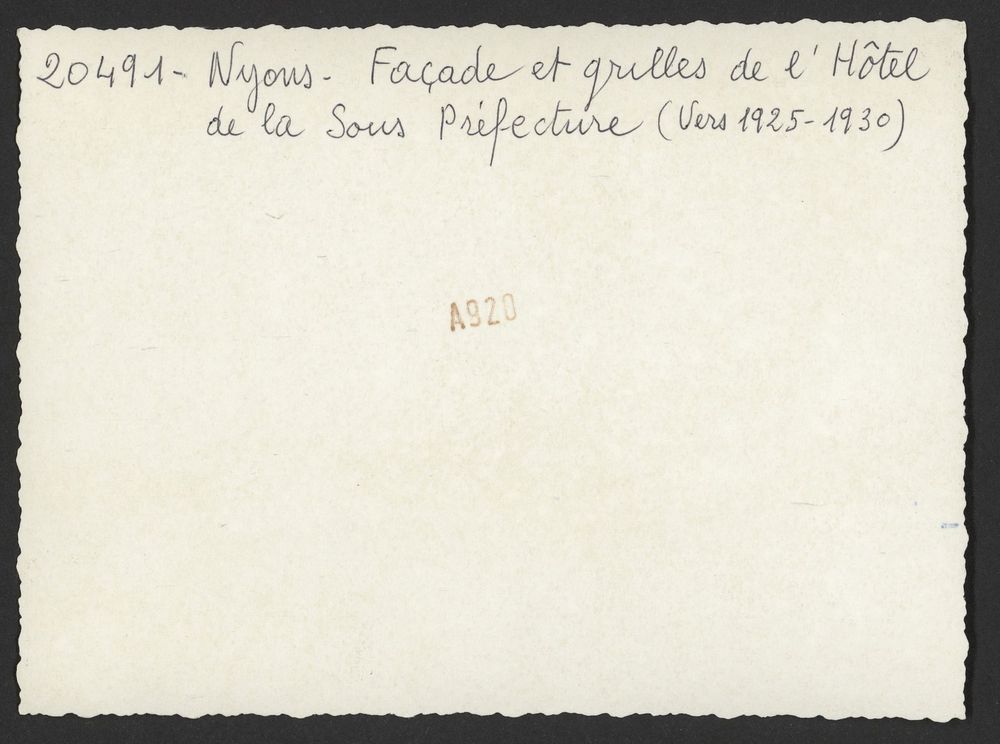 20491- Nyons- Façade et grilles de l'Hôtel
de la Sous Préfecture (Vers 1925-1930)
A920